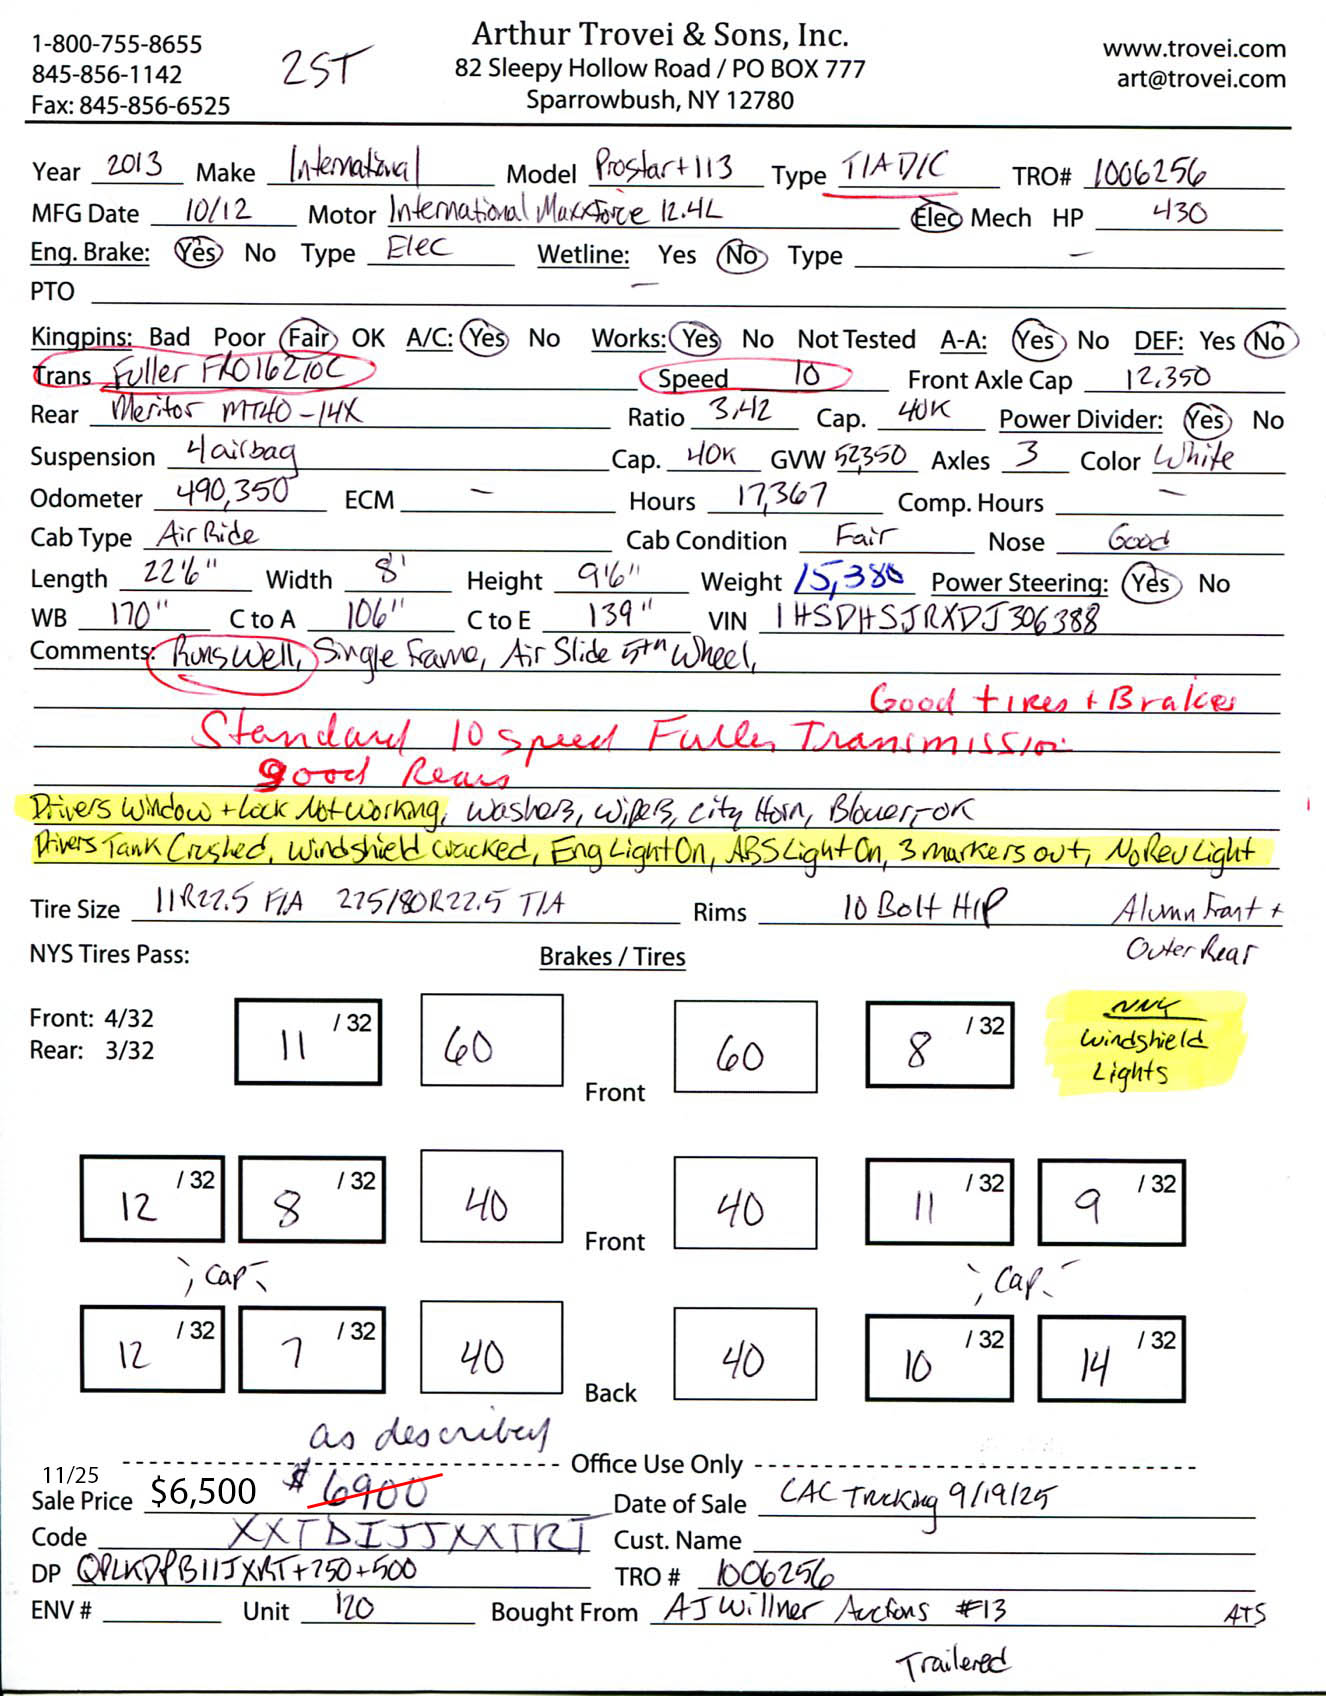 Arthur Trovei & Sons, Inc.
1-800-755-8655 2ST 82 Sleepy Hollow Road / PO BOX 777 www.trovei.com
845-856-1142 Sparrowbush, NY 12780 art@trovei.com
Fax: 845-856-6525
Year 2013 Make International Model Prostar+113 Type T/A D/C TRO# 1006256
MFG Date 10/12 Motor International Maxxforce 12.4L Elec Mech HP 430
Eng. Brake: Yes No Type Elec Wetline: Yes No Type —
PTO —
Kingpins: Bad Poor Fair OK A/C: Yes No Works: Yes No Not Tested A-A: Yes No DEF: Yes No
Trans Fuller FRO16210C Speed 10 Front Axle Cap 12,350
Rear Meritor MT40-14X Ratio 3.42 Cap. 40K Power Divider: Yes No
Suspension 4 airbag Cap. 40K GVW 52,350 Axles 3 Color White
Odometer 490,350 ECM — Hours 17,367 Comp. Hours —
Cab Type Air Ride Cab Condition Fair Nose Good
Length 22'6" Width 8' Height 9'6" Weight 15,380 Power Steering: Yes No
WB 170" C to A 106" C to E 139" VIN 1HSDHSJRXDJ306388
Comments: Runs Well, Single Frame, Air Slide 5th Wheel,
Good tires + Brakes
Standard 10 speed Fuller Transmission
good Rears
Drivers Window + Lock Not Working, Washers, Wipers, City Horn, Blower-OK
Drivers Tank Crushed, Windshield cracked, Eng Light On, ABS Light On, 3 markers out, No Rev Light
Tire Size 11R22.5 F/A 275/80R22.5 T/A Rims 10 Bolt H/P Alumn Front +
Outer Rear
NYS Tires Pass: Brakes / Tires
Front: 4/32 11 /32 60 Front 60 8 /32
Rear: 3/32
Windshield
Lights
12 /32 8 /32 40 Front 40 11 /32 9 /32
Cap Cap
12 /32 7 /32 40 Back 40 10 /32 14 /32
as described
Office Use Only
11/25
Sale Price $6,500 $6900 Date of Sale CAC Trucking 9/19/25
Code XXTDIJJXXTRT Cust. Name
DP QPLKDPB11JXRT+750+500 TRO # 1006256
ENV # Unit 120 Bought From AJ Willner Auctions #13 ATS
Trailered